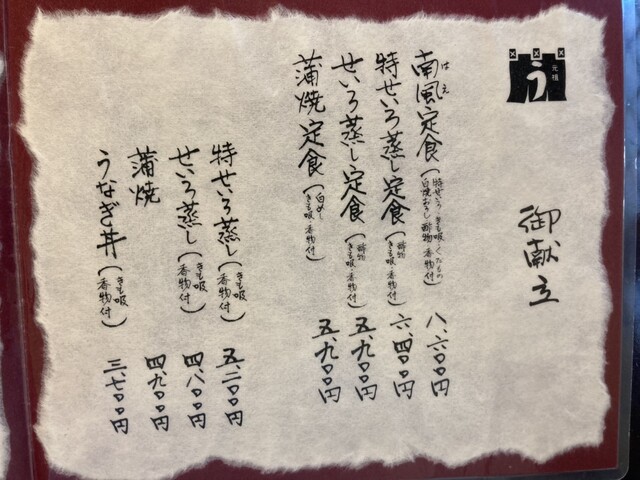 元祖
う
御献立
南風定食(特せいろ・きも吸・くだもの 白焼おろし 酢物・香物付) 八、六〇〇円
はえ
特せいろ蒸し定食(酢物 きも吸・香物付) 六、四〇〇円
せいろ蒸し定食(酢物 きも吸・香物付) 五、九〇〇円
蒲焼定食(白めし きも吸・香物付) 五、九〇〇円
特せいろ蒸し(きも吸 香物付) 五、二〇〇円
せいろ蒸し(きも吸 香物付) 四、八〇〇円
蒲焼 四、九〇〇円
うなぎ丼(きも吸 香物付) 三、七〇〇円